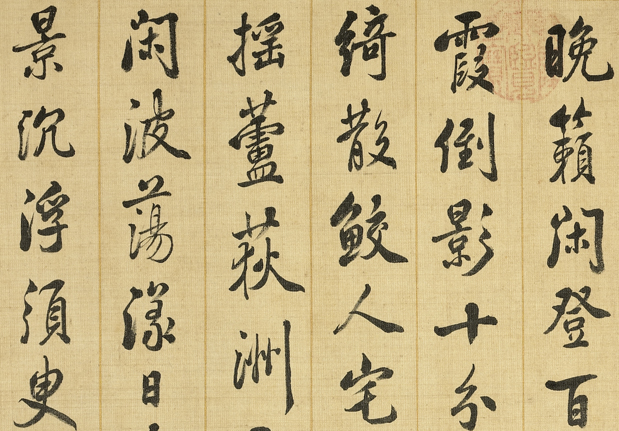 晚籟閑登百
霞倒影十分
綺散鮫人宅
搖蘆荻洲
閑波蕩漾日
景沉浮須臾